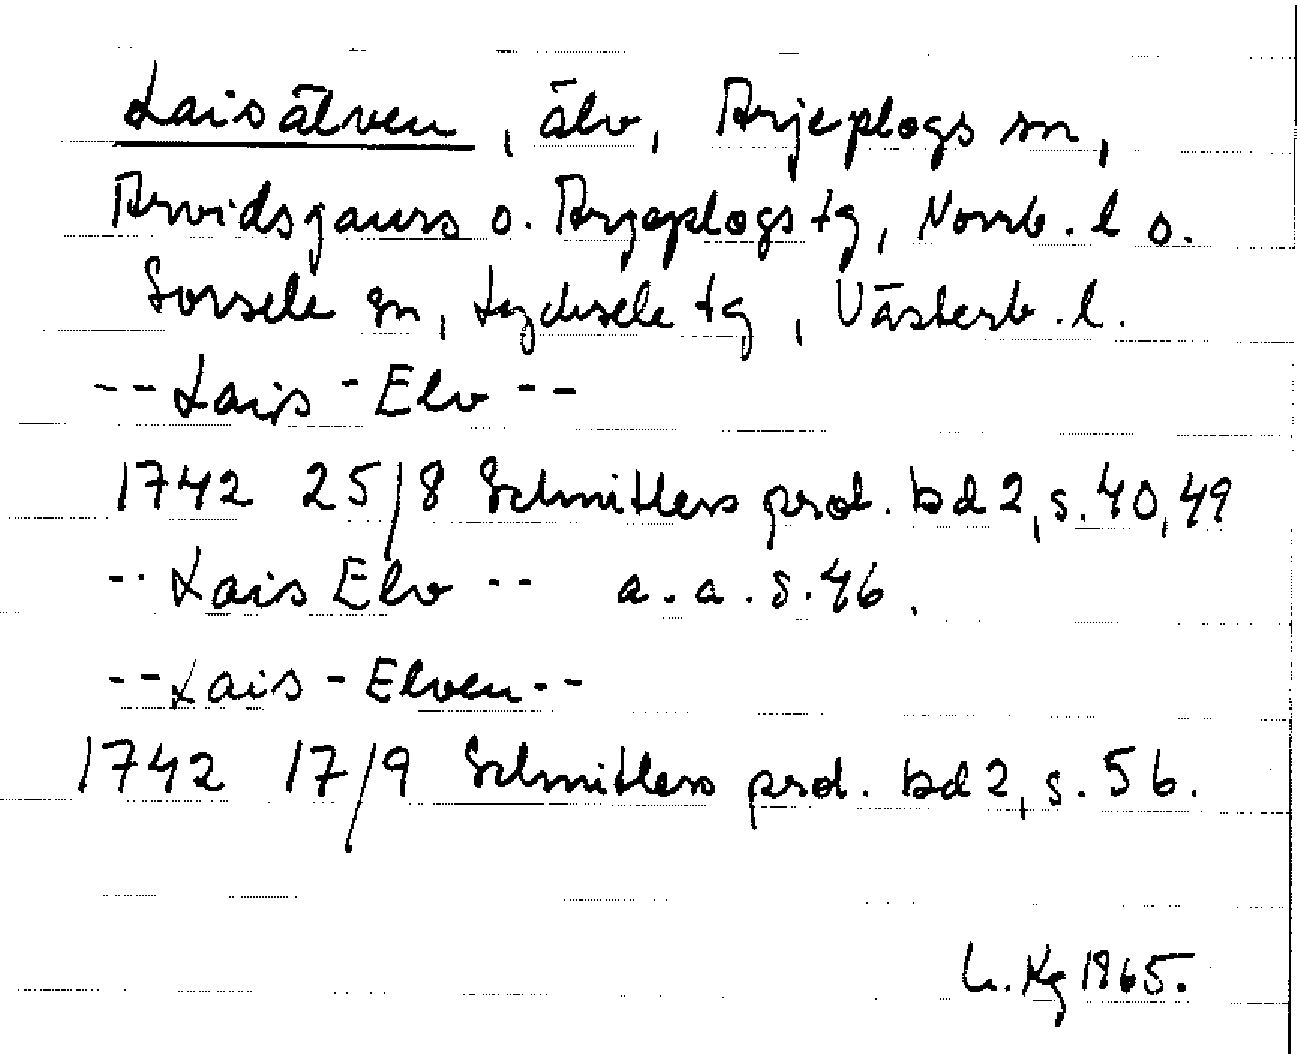 Laisälven, älv, Arjeplogs sn,
Arvidsjaurs o. Arjeplogs tg, Norrb. l o.
Sorsele sn, Lycksele tg, Västerb. l.
-- Lais - Elv --
1742 25/8 Schnitlers prot. bd 2, s. 40, 49
-- Lais Elv -- a. a. s. 46.
-- Lais - Elven --
1742 17/9 Schnitlers prot. bd 2, s. 56.
L. Kg 1965.